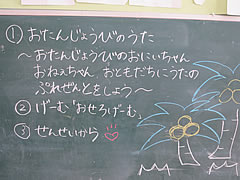 ① おたんじょうびのうた
～おたんじょうびのおにいちゃん
おねえちゃん おともだちにうたの
ぷれぜんとをしよう～
② げーむ "おせろげーむ"
③ せんせいから